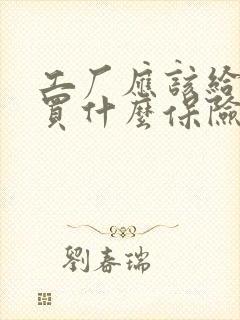 工厂應該給
買什麼保險
劉春瑞